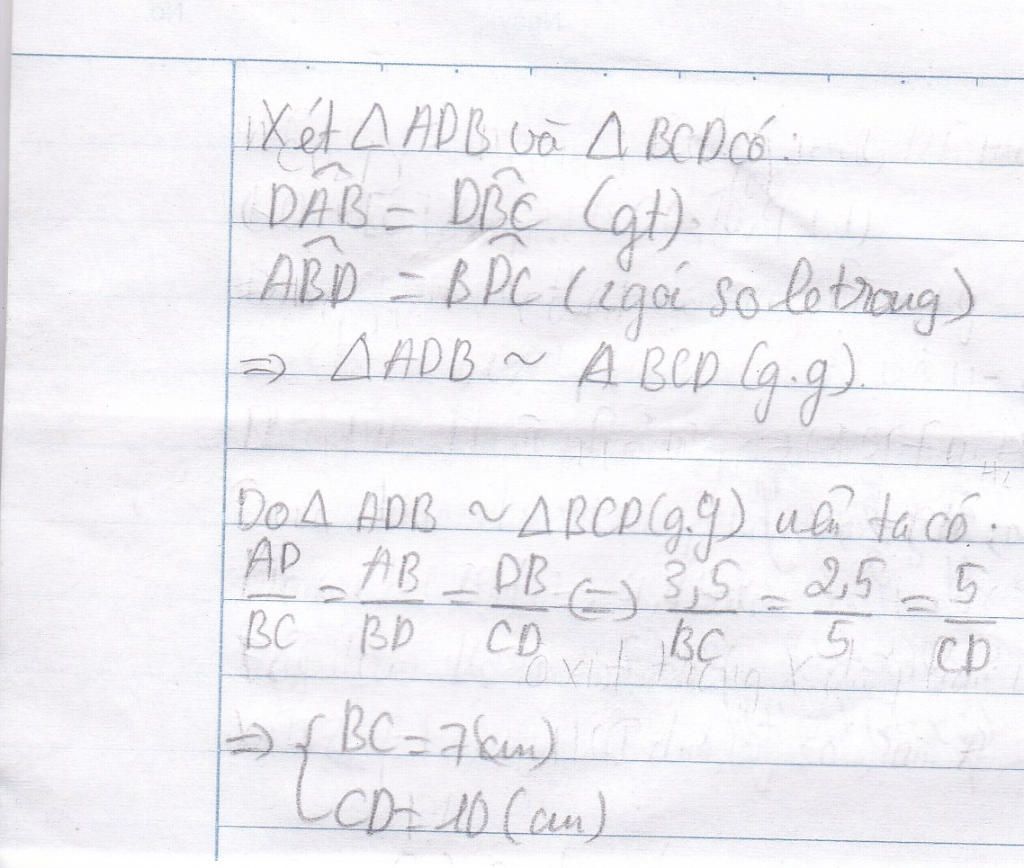 Xét Δ ADB và Δ BCD có:
DÂB = DB̂C (gt)
AB̂D = BD̂C (2 góc so le trong)
⇒ Δ ADB ~ Δ BCD (g.g).
Do Δ ADB ~ Δ BCD (g.g) nên ta có:
AD/BC = AB/BD = DB/CD (=) 3,5/BC = 2,5/5 = 5/CD
⇒ { BC = 7 (cm)
CD = 10 (cm)